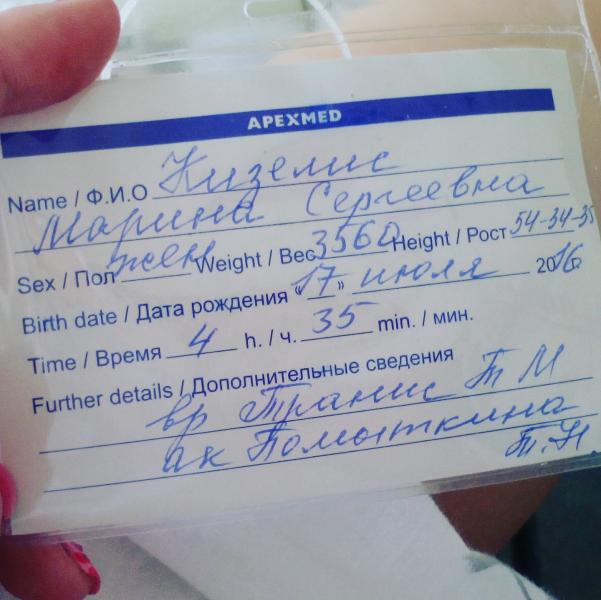 APEXMED
Name / Ф.И.О Кизелис
Марина Сергеевна
Sex / Пол жен Weight / Вес 3560 Height / Рост 54-34-35
Birth date / Дата рождения «17» июля 2016
Time / Время 4 h. / ч. 35 min. / мин.
Further details / Дополнительные сведения
вр Транис Т М
ак Помыткина
Т.Н